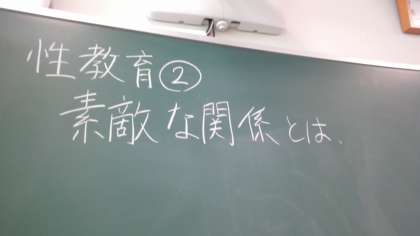 性教育②
素敵な関係とは、